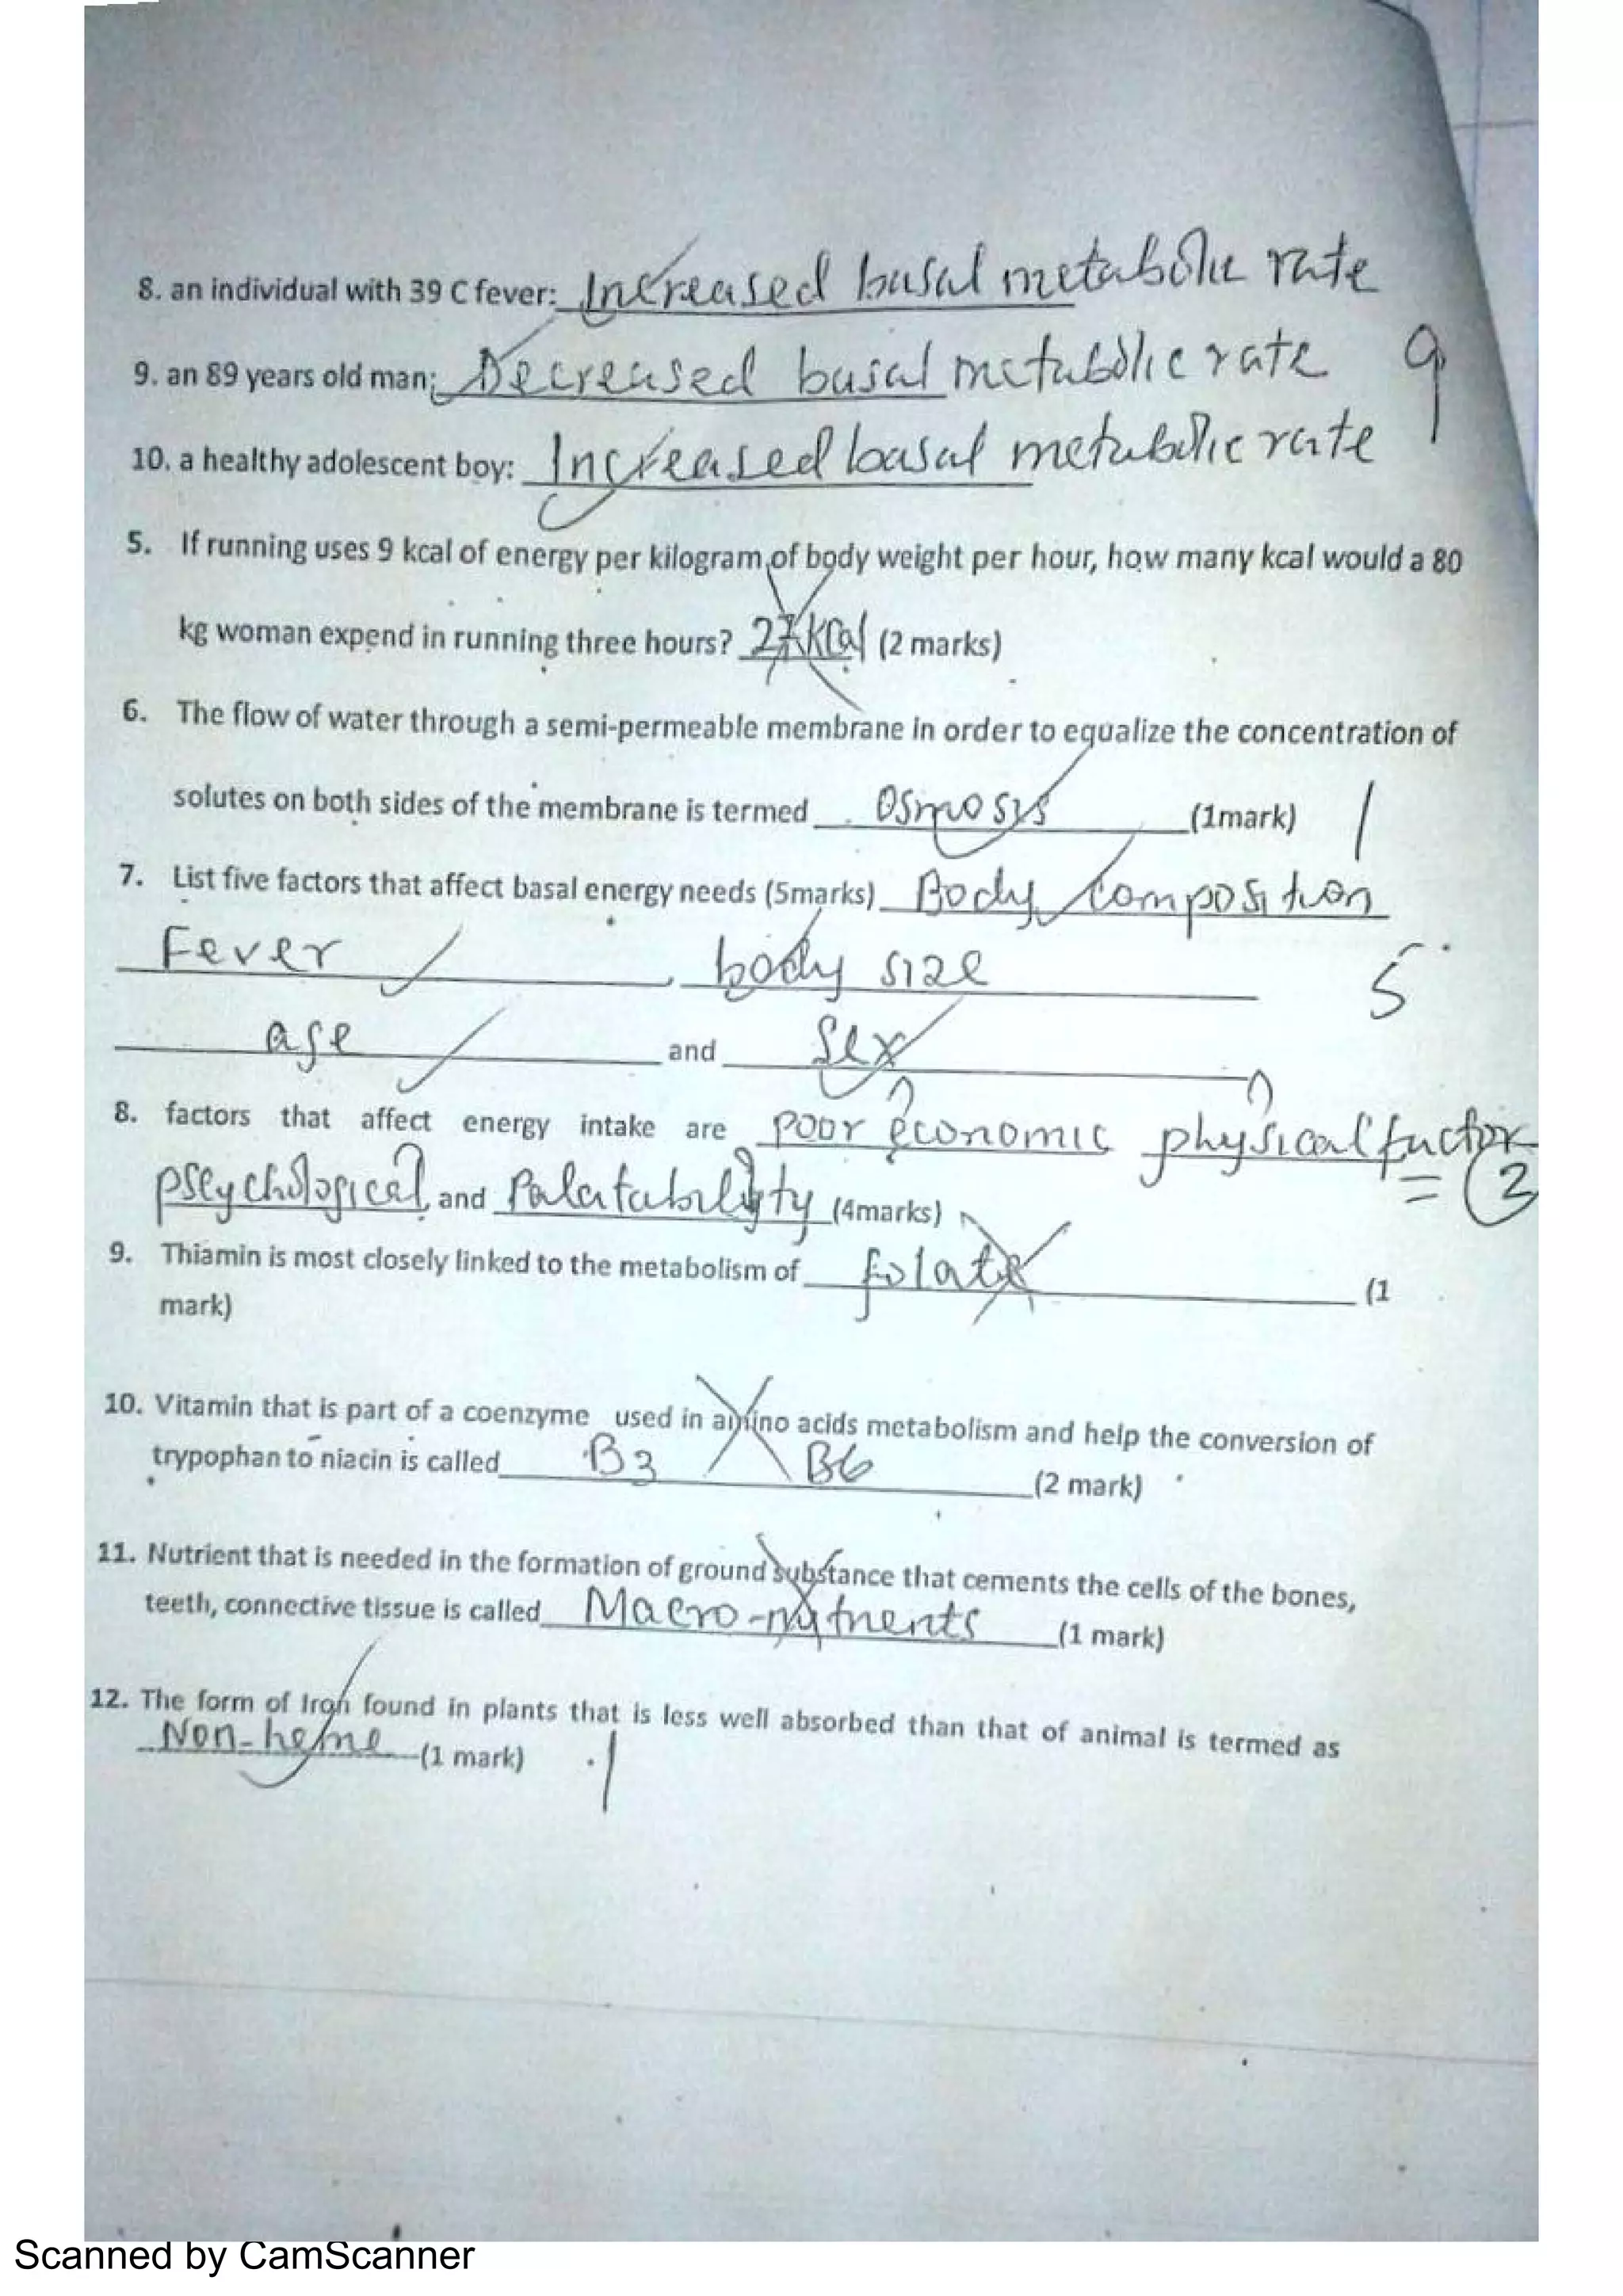 8. an individual with 39 C fever: Increased basal metabolic rate
9. an 89 years old man: Decreased basal metabolic rate 9
10. a healthy adolescent boy: Increased basal metabolic rate
5. If running uses 9 kcal of energy per kilogram of body weight per hour, how many kcal would a 80
kg woman expend in running three hours? 27 kCal (2 marks)
6. The flow of water through a semi-permeable membrane in order to equalize the concentration of
solutes on both sides of the membrane is termed Osmosis (1mark) 1
7. List five factors that affect basal energy needs (5marks) Body Composition
Fever, body size 5
age and Sex
8. factors that affect energy intake are poor economic physical factor
pseychological and Palatability (4marks) = 2
9. Thiamin is most closely linked to the metabolism of folate (1
mark)
10. Vitamin that is part of a coenzyme used in amino acids metabolism and help the conversion of
trypophan to niacin is called B3 B6 (2 mark)
11. Nutrient that is needed in the formation of ground substance that cements the cells of the bones,
teeth, connective tissue is called Macro-nutrients (1 mark)
12. The form of Iron found in plants that is less well absorbed than that of animal is termed as
Non-heme (1 mark) 1
Scanned by CamScanner